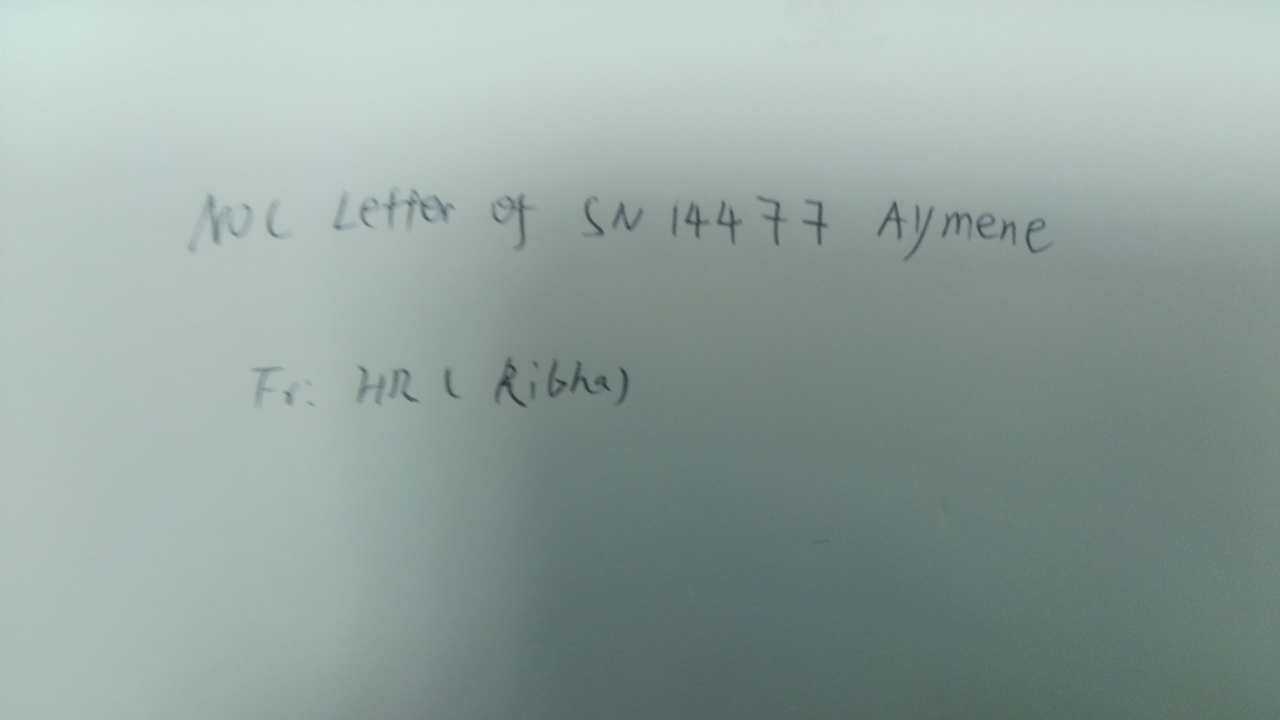 NOC Letter of SN 14477 Aymene
Fr: HR ( Ribha)